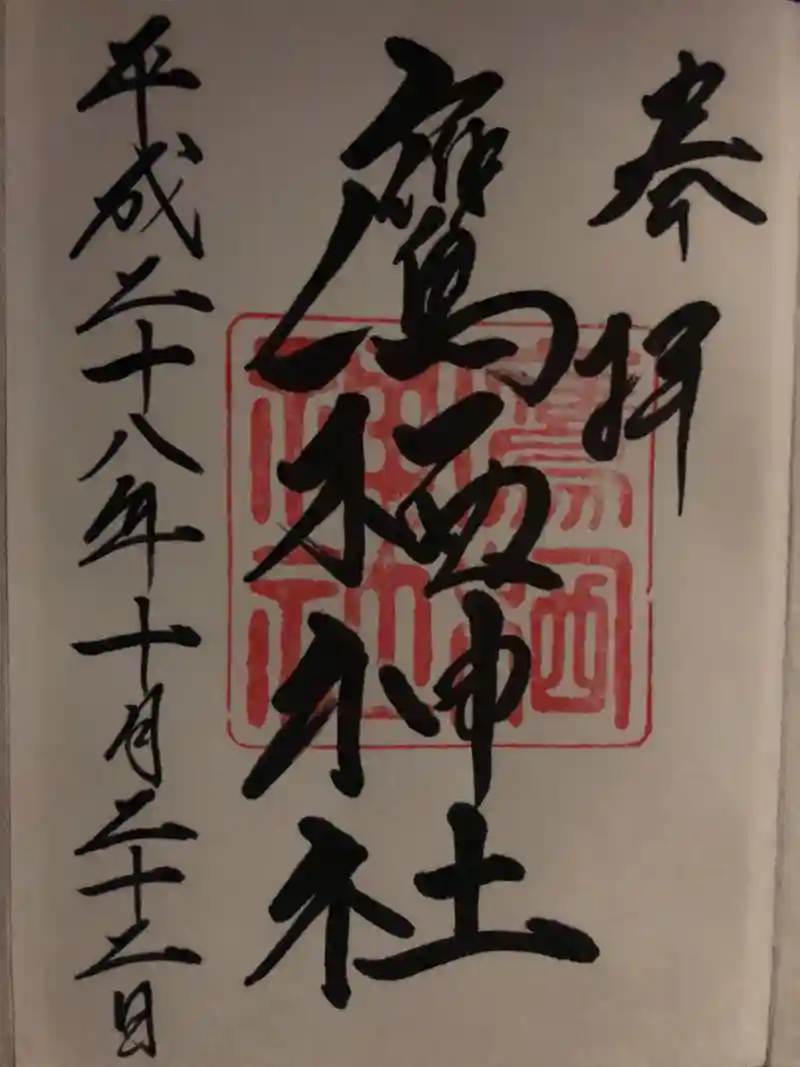 奉拝
鷹栖神社
平成二十八年十月二十二日
鷹栖神社